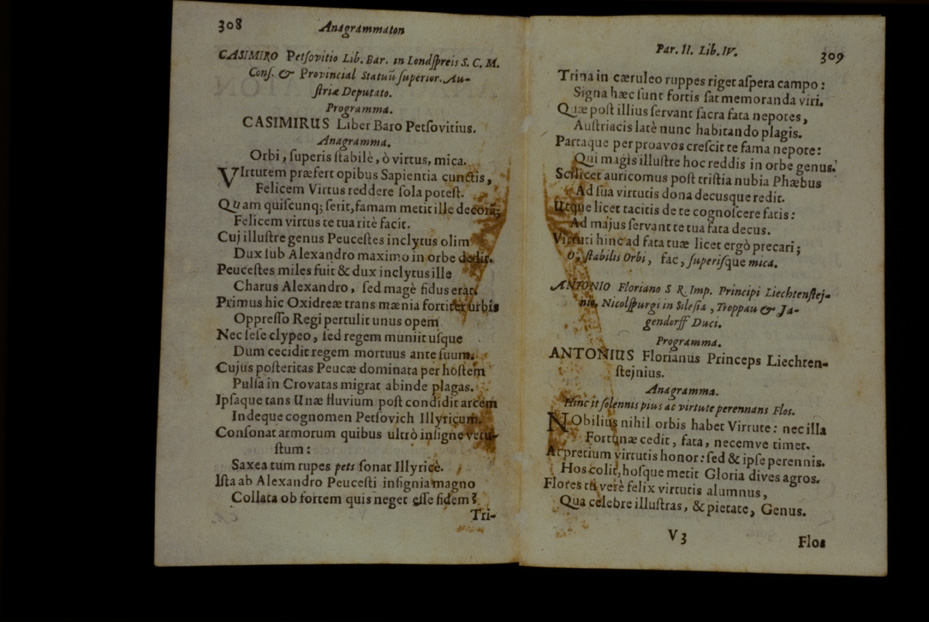 308
Anagrammaton
CASIMIRO Petſovitio Lib. Bar. in Londſpreis S. C. M.
Conſ. & Provincial Statuū ſuperior. Au-
ſtriæ Deputato.
Programma.
CASIMIRUS Liber Baro Petſovitius.
Anagramma.
Orbi, ſuperis ſtabilè, ò virtus, mica.
VIrturem præfert opibus Sapientia cunctis,
Felicem Virtus reddere ſola poteſt.
Quam quiſcunq; ſerit, famam metit ille decoiā;
Felicem virtus te tua ritè facit.
Cuj illuſtre genus Peuceſtes inclytus olim
Dux ſub Alexandro maximo in orbe dedit.
Peuceſtes miles fuit & dux inclytus ille
Charus Alexandro, ſed magè fidus erat.
Primus hic Oxidreæ trans mænia fortiter urbis
Oppreſſo Regi pertulit unus opem
Nec ſeſe clypeo, ſed regem muniit uſque
Dum cecidit regem mortuus ante ſuum.
Cujus poſteritas Peucæ dominata per hoſtem
Pulſa in Crovatas migrat abinde plagas.
Ipſaque tans Unæ fluvium poſt condidit arcem
Indeque cognomen Petſovich Illyricum.
Conſonat armorum quibus ultrò inſigne vetu-
ſtum:
Saxea tum rupes pets ſonat Illyricè.
Iſta ab Alexandro Peuceſti inſignia magno
Collata ob fortem quis neget eſſe fidem?
Tri-
Par. II. Lib. IV.
309
Trina in cæruleo ruppes riget aſpera campo:
Signa hæc ſunt fortis ſat memoranda viri.
Quæ poſt illius ſervant ſacra fata nepotes,
Auſtriacis latè nunc habitando plagis.
Partaque per proavos creſcit te fama nepote:
Qui magis illuſtre hoc reddis in orbe genus.
Scilicet auricomus poſt triſtia nubia Phæbus
Ad ſua virtutis dona decusque redit.
Utque licet tacitis de te cognoſcere fatis:
Ad majus ſervant te tua fata decus.
Virtuti hinc ad fata tuæ licet ergò precari;
O, ſtabilis Orbi, fac, ſuperiſque mica.
ANTONIO Floriano S R. Imp. Principi Liechtenſtej-
nio, Nicolſpurgi in Sileſia, Troppau & Ja-
gendorff Duci.
Programma.
ANTONIUS Florianus Princeps Liechten-
ſtejnius.
Anagramma.
Hinc it ſolennis pius ac virtute perennans Flos.
NObilius nihil orbis habet Virtute: nec illa
Fortunæ cedit, fata, necemve timet.
At pretium virtutis honor: ſed & ipſe perennis.
Hos colit, hoſque metit Gloria dives agros.
Flores tu verè felix virtutis alumnus,
Qua celebre illuſtras, & pietate, Genus.
V 3
Flos